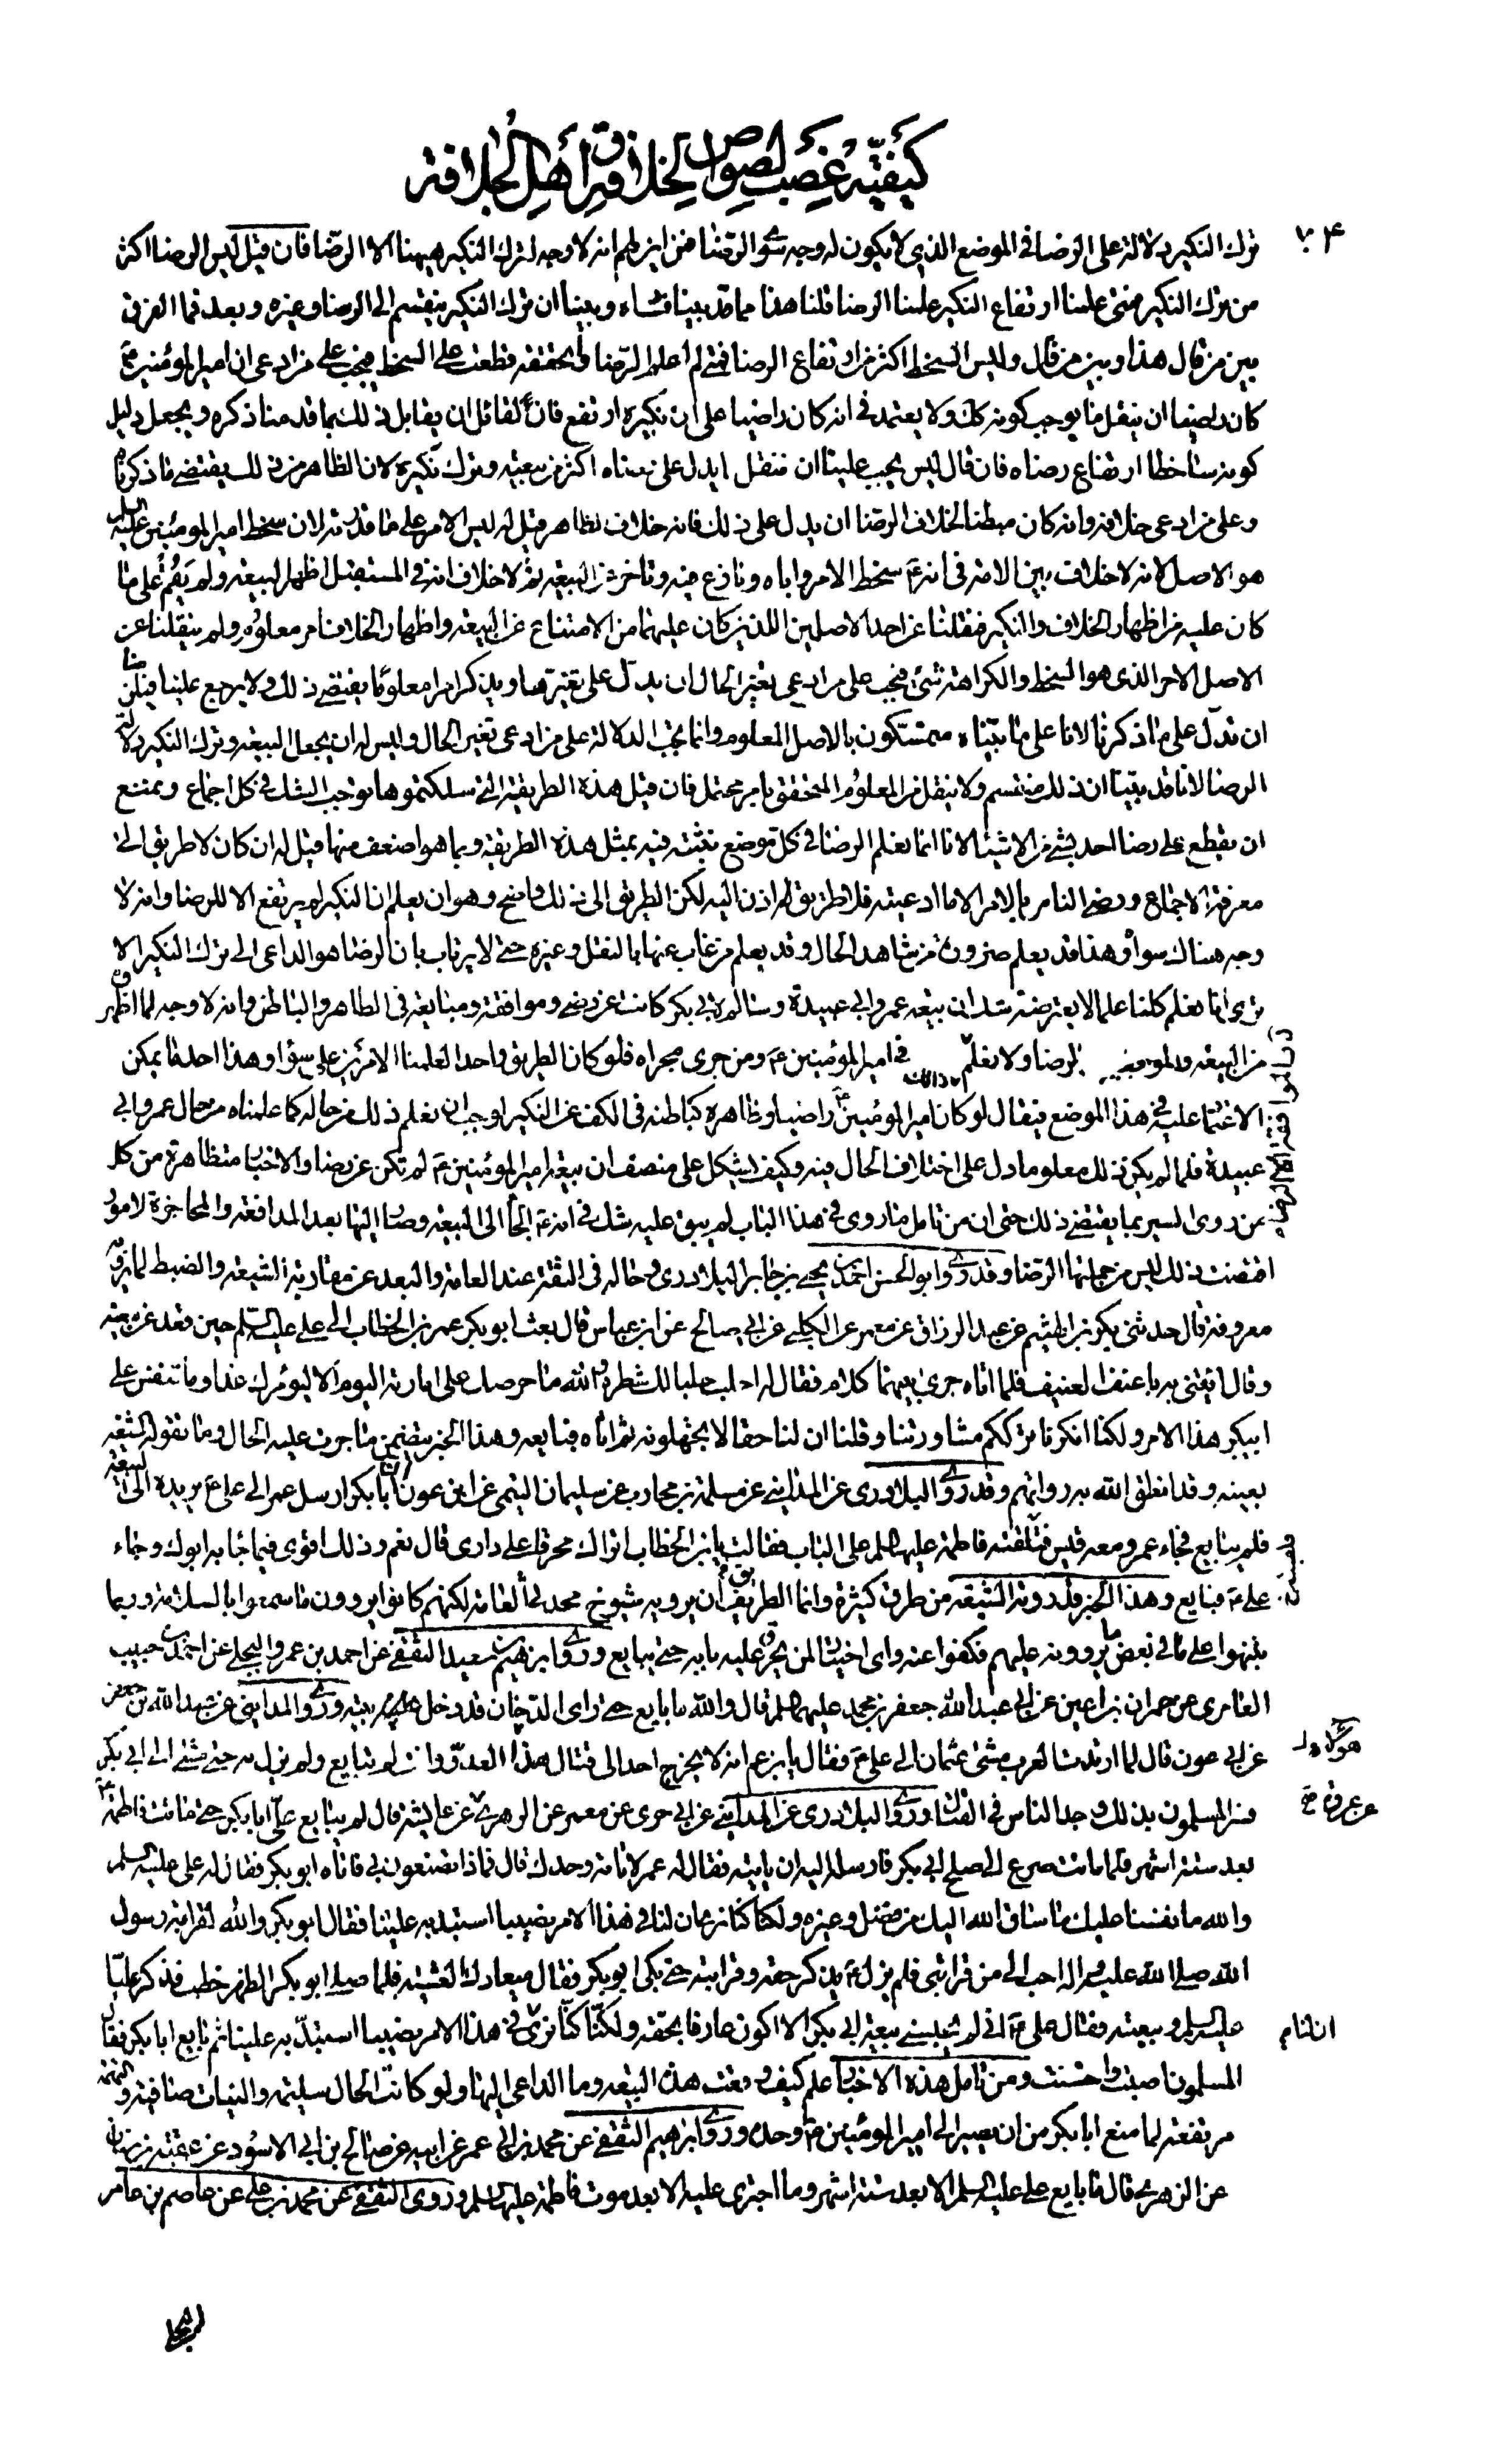 كيفية غصب لصوص الخلافة أهل الجلافة
٧٤
ترك النكير دلالة على الرضا في الموضع الذي لا يكون له وجه سوى الرضا فمن اين لهم انه لا وجه لترك النكير هيهنا الا الرضا فان قيل ليس الرضا اكثر
من ترك النكير فمتى علمنا ارتفاع النكير علمنا الرضا قلنا هذا مما قد بينا فساده وبينا ان ترك النكير ينقسم الى الرضا وغيره وبعد فما الفرق
بين من قال هذا وبين من قال وليس السخط اكثر من ارتفاع الرضا فمتى لم اعلم الرضا واتحققه قطعت على السخط فيجب على من ادعى ان امير المؤمنين ع
كان راضيا ان ينقل ما يوجب كونه كك ولا يعتمد في انه كان راضيا على ان نكيره ارتفع فان لقائل ان يقابل ذلك بما قدمنا ذكره ويجعل دليل
كونه ساخطا ارتفاع رضاه فان قال ليس يجب علينا ان ننقل ما يدل على رضاه اكثر من بيعته وترك نكيره لان الظاهر من ذلك يقتضى ما ذكرناه
وعلى من ادعى خلافه وانه كان مبطنا لخلاف الرضا ان يدل على ذلك فانه خلاف الظاهر قيل له ليس الامر على ما قدرته لان سخط امير المؤمنين عليه السلم
هو الاصل لانه لا خلاف بين الامة في انه ع سخط الامر واباه ونازع فيه وتاخر عن البيعة ثم لا خلاف انه في المستقبل اظهر البيعة ولم يقم على ما
كان عليه من اظهار الخلاف والنكير فنقلنا عن احد الاصلين اللذين كان عليهما من الامتناع عن البيعة واظهار الخلاف امر معلوم ولم ينقلنا عن
الاصل الاخر الذى هو السخط والكراهة شئ فيجب على من ادعى تغير الحال ان يدل على تغيرها ويذكر امرا معلوما يقتضى ذلك ولا يرجع علينا فيلزمنا
ان ندل على ما ذكرنا لانا على ما بيناه متمسكون بالاصل المعلوم وانما تجب الدلالة على من ادعى تغير الحال وليس له ان يجعل البيعة وترك النكير دلالة
الرضا لانا قد بينا ان ذلك منقسم ولا ينقل من المعلوم المتحقق بامر محتمل فان قيل هذه الطريقة التى سلكتموها توجب الشك في كل اجماع وتمنع
ان يقطع على رضا احد بشئ من الاشياء لانا انما نعلم الرضا في كل موضع نثبته فيه بمثل هذه الطريقة وبما هو اضعف منها قيل له ان كان لا طريق الى
معرفة الاجماع ورضى الناس بالامر الا ما ادعيته فلا طريق اذن اليه لكن الطريق الى ذلك واضح وهو ان يعلم ان النكير لم يرتفع الا للرضا وانه لا
وجه هناك سواه وهذا قد يعلم ضرورة من شاهد الحال وقد يعلم من غاب عنها بالنقل وغيره حتى لا يرتاب بان الرضا هو الداعى الى ترك النكير الا
ترى انا نعلم كلنا علما لا يعترضنه شك ان بيعة عمر وابي عبيدة وسالم لابي بكر كانت عن رضى وموافقة ومتابعة في الظاهر والباطن وانه لا وجه لما اظهروه
من البيعة والموافقة الرضا ولا نعلم ذلك في امير المؤمنين ع ومن جرى مجراه فلو كان الطريق واحدا لعلمنا الامرين على سواء وهذا احد ما يمكن
الاعتماد عليه في هذا الموضع فيقال لو كان امير المؤمنين ع راضيا وظاهره كباطنه في الكف عن النكير لوجب ان نعلم ذلك من حاله كما علمناه من حال عمر وابي
عبيدة فلما لم يكن ذلك معلوما دل على اختلاف الحال فيه وكيف يشكل على منصف ان بيعة امير المؤمنين ع لم تكن عن رضا والاخبار متظاهرة من كل
من روى السير بما يقتضى ذلك حتى ان من تامل ما روى في هذا الباب لم يبق عليه شك في انه ع الجأ الى البيعة وصار اليها بعد المدافعة والمحاجزة لامور
اقتضت ذلك ليس من جملتها الرضا وقد روى ابو الحسن احمد بن يحيى بن جابر البلاذرى وحاله في الثقة عند العامة والبعد عن مقاربة الشيعة والضبط لما يرويه
معروفة قال حدثنى بكر بن الهيثم عن عبد الرزاق عن معمر عن الكلبى عن ابي صالح عن ابن عباس قال بعث ابو بكر عمر بن الخطاب الى على عليه السلم حين قعد عن بيعته
وقال ائتنى به باعنف العنيف فلما اتاه جرى بينهما كلام فقال له احلب حلبا لك شطره والله ما حرصك على امارته اليوم الا ليؤمرك غدا وما ننفس على
ابي بكر هذا الامر ولكنا انكرنا ترككم مشاورتنا وقلنا ان لنا حقا لا يجهلونه ثم اتاه فبايعه وهذا الخبر يتضمن ما جرت عليه الحال وما تقوله الشيعة
بعينه وقد انطق الله به رواتهم وقد روى البلاذرى عن المدائنى عن مسلمة بن محارب عن سليمان التيمى عن ابن عون ان ابا بكر ارسل عمر الى على ع يريده الى البيعة
فلم يبايع فجاء عمر ومعه قبس فتلقته فاطمة عليها السلم على الباب فقالت يا بن الخطاب اتراك محرقا على دارى قال نعم وذلك اقوى فيما جاء به ابوك وجاء
على ع فبايع وهذا الخبر قد روته الشيعة من طرق كثيرة وانما الطريف ان يرويه شيوخ محدثى العامة لكنهم كانوا يروون ما سمعوا بالسلامة وربما
تنبهوا على ما في بعض ما يروونه عليهم فكفوا عنه واى اختيار لمن يحرق عليه بابه حتى يبايع وروى ابرهيم بن سعيد الثقفى عن احمد بن عمرو البجلى عن احمد بن حبيب
العامرى عن حمران بن اعين عن ابي عبد الله جعفر بن محمد عليهما السلم قال والله ما بايع على حتى راى الدخان قد دخل عليه بيته وروى المدائنى عن عبد الله بن جعفر
عن ابي عون قال لما ارتدت العرب مشى عثمان الى على ع فقال يا بن عم انه لا يخرج احد الى قتال هذا العدو وانت لم تبايع ولم يزل به حتى مشى الى ابي بكر
فسر المسلمون بذلك وجد الناس في القتال وروى البلاذرى عن المدائنى عن ابي جرى عن معمر عن الزهرى عن عروة عن عايشة قال لم يبايع على ابا بكر حتى ماتت فاطمة ع
بعد ستة اشهر فلما ماتت ضرع الى صلح ابي بكر فارسل اليه ان ياتيه فقال له عمر لا تاته وحدك قال فماذا يصنعون بي فاتاه ابو بكر فقال له على عليه السلم
والله ما نفسنا عليك ما ساق الله اليك من فضل وغيره ولكنا كنا نرى ان لنا في هذا الامر نصيبا استبد به علينا فقال ابو بكر والله لقرابة رسول
الله صلى الله عليه واله احب الى من قرابتى فلم يزل ع يذكر حقه وقرابته حتى بكى ابو بكر فقال ميعادك العشية فلما صلى ابو بكر الظهر خطب فذكر عليا
عليه السلم وبيعته فقال على ع انى لم يحبسنى عن بيعة ابي بكر الا اكون عارفا بحقه ولكنا كنا نرى ان لنا في هذا الامر نصيبا استبد به علينا ثم بايع ابا بكر فقال
المسلمون اصبت واحسنت ومن تامل هذه الاخبار علم كيف وقعت هذه البيعة وما الداعى اليها ولو كانت الحال سليمة والنيات صافية والتهمة
مرتفعة لما منع ابا بكر من ان يصير الى امير المؤمنين ع وحده وروى ابرهيم الثقفى عن محمد بن ابي عمر عن ابيه عن صالح بن ابي الاسود عن عقبة بن سنان
عن الزهرى قال ما بايع على عليه السلم الا بعد ستة اشهر وما اجترى عليه الا بعد موت فاطمة عليها السلم وروى الثقفى عن محمد بن على عن عاصم بن عامر
البجلى